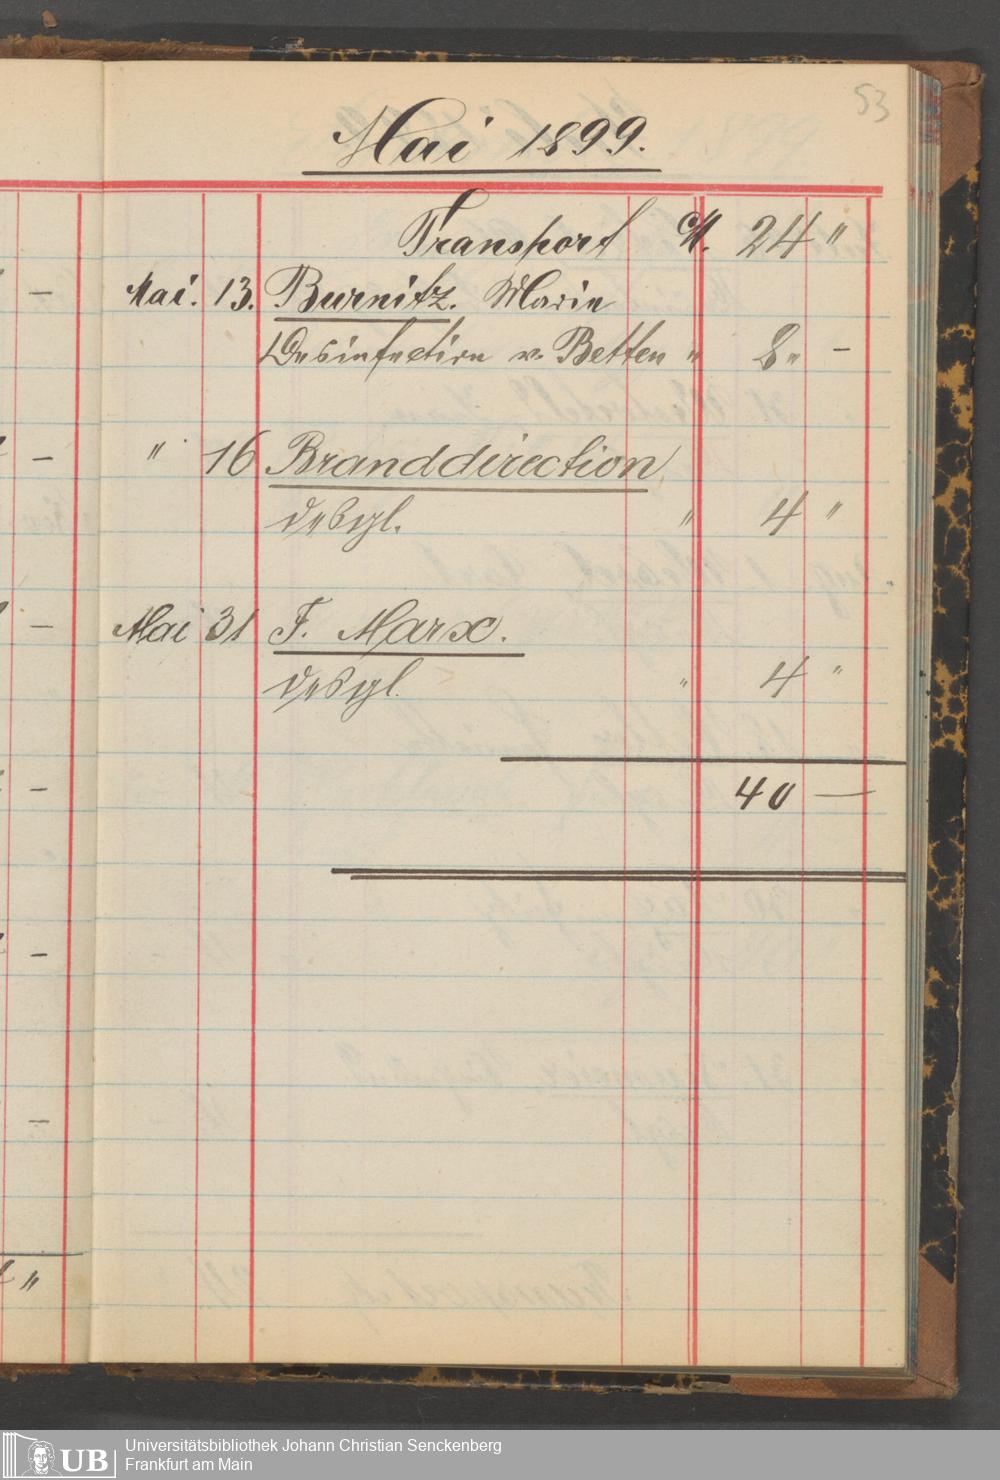 53
Mai 1899.
Transport M. 24 "
Mai. 13. Burnitz. Marie
Desinfection v. Betten " 8 " –
" 16 Branddirection
desgl. " 4 "
Mai 31 F. Marx.
desgl. " 4 "
40 —
UB
Universitätsbibliothek Johann Christian Senckenberg
Frankfurt am Main